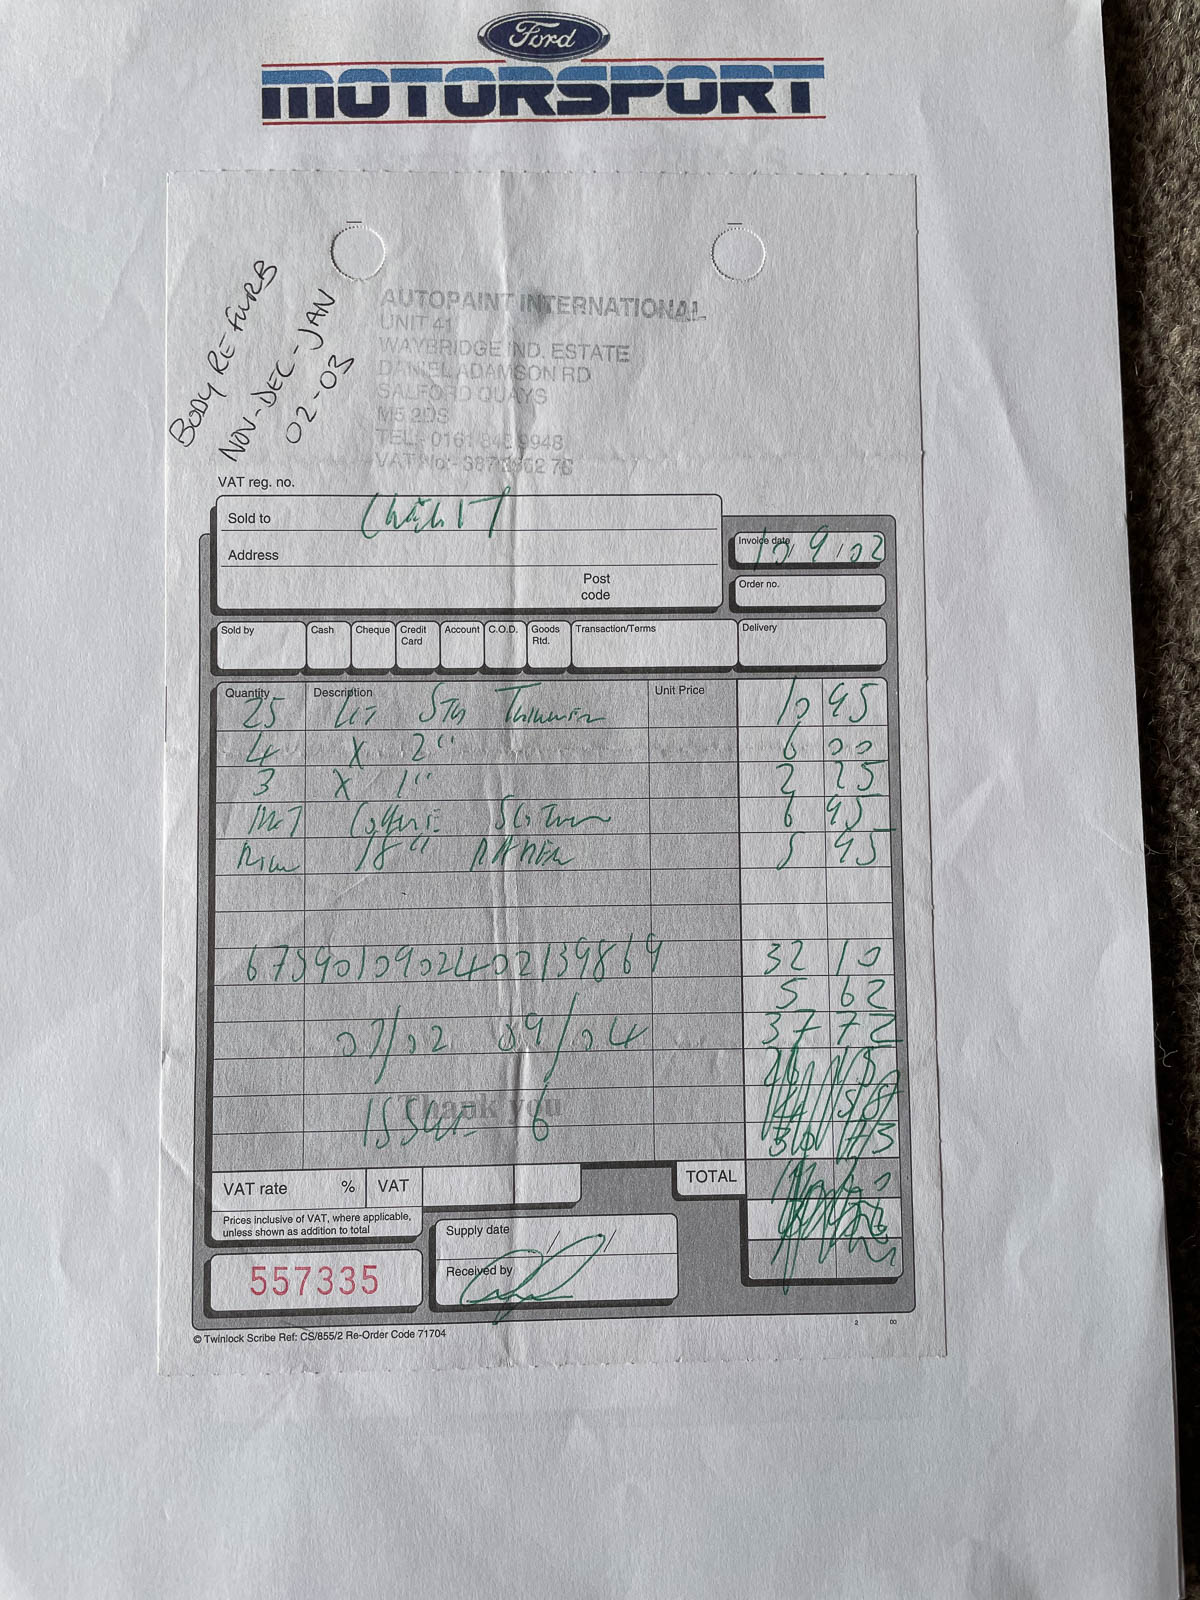 Ford
MOTORSPORT
BODY REFURB
NOV-DEC-JAN
02-03
AUTOPAINT INTERNATIONAL
UNIT 41
WAYBRIDGE IND. ESTATE
DANIEL ADAMSON RD
SALFORD QUAYS
M5 2DS
TEL:- 0161 848 9948
VAT No:-
VAT reg. no.
Sold to
Address
Post code
Invoice date 10/9/02
Order no.
Sold by Cash Cheque Credit Card Account C.O.D. Goods Rtd. Transaction/Terms Delivery
Quantity Description Unit Price
25 LIT STD THINNER 10 95
4 X 2" 6 00
3 X 1" 2 25
6 95
18" PAPER 5 95
32 10
5 62
07/02 09/04 37 72
ISSUE 6
Thank you
VAT rate % VAT TOTAL
Prices inclusive of VAT, where applicable,
unless shown as addition to total
Supply date / /
Received by
557335
© Twinlock Scribe Ref: CS/855/2 Re-Order Code 71704